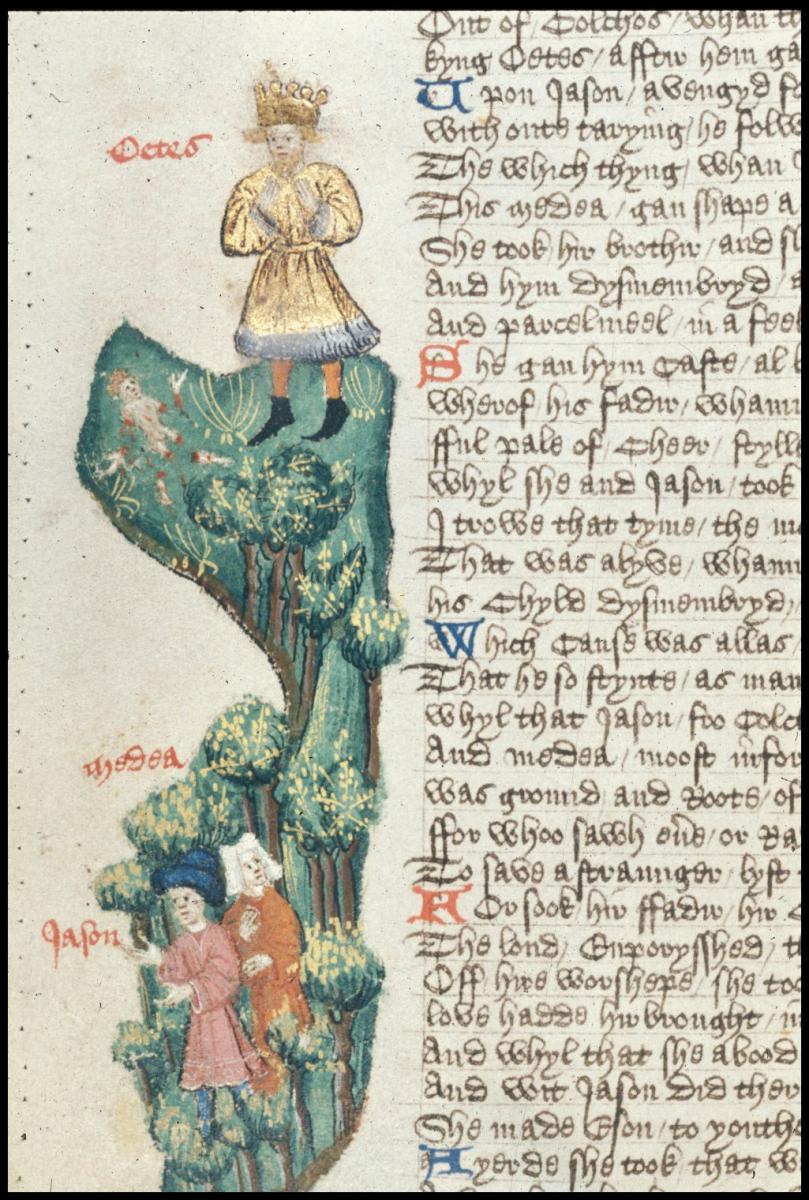 Oetes
medea
Jason
Out of / Colchos / whan th
kyng Oetes / afftir hem ga
Upon Jason / avengyd fo
with oute tarying / he folw
The which thyng / whan
This medea / gan shape a
She took hir brothir / and sl
And hym dysmembryd / a
And parcelmeel / in a feel
She gan hym Caste / al
wherof / his fadir / whann
fful pale of / Cheer / stylle
whyl she and Jason / took
I trowe that tyme / the m
That was alyve / whann
his Chyld dysmembryd /
Which Cause was allas /
That he so stynte / as man
whyl that Jason / fro Colc
And medea / moost infor
was ground and Roote / of
ffor whoo sawh evere / or Ra
To save a straunger / lyst
For sook / hir ffadir / hir C
The lond / Enporysshed / t
Off hire worshepe / she too
love hadde hir brought / in
And whyl that she abood
And wit Jason did ther
She made Eson / to youthe
A yerde she took that w